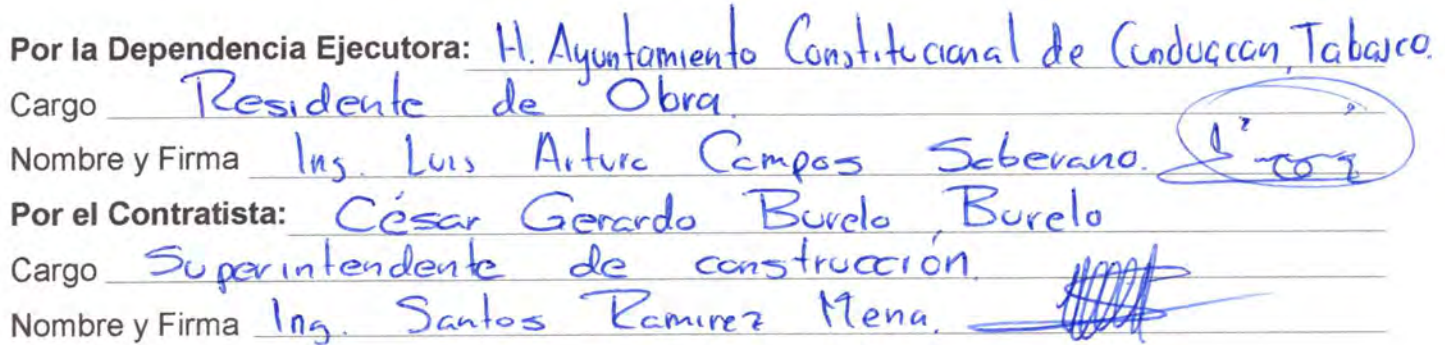 Por la Dependencia Ejecutora: H. Ayuntamiento Constitucional de Cunduacan, Tabasco.
Cargo Residente de Obra.
Nombre y Firma Ing. Luis Arturo Campos Soberano.
Por el Contratista: César Gerardo Burelo Burelo
Cargo Superintendente de construcción.
Nombre y Firma Ing. Santos Ramirez Mena.